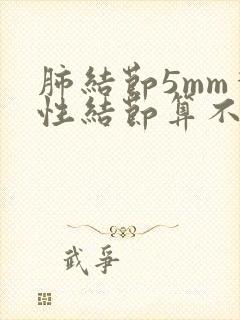 肺結節5mm
性結節算不
武爭